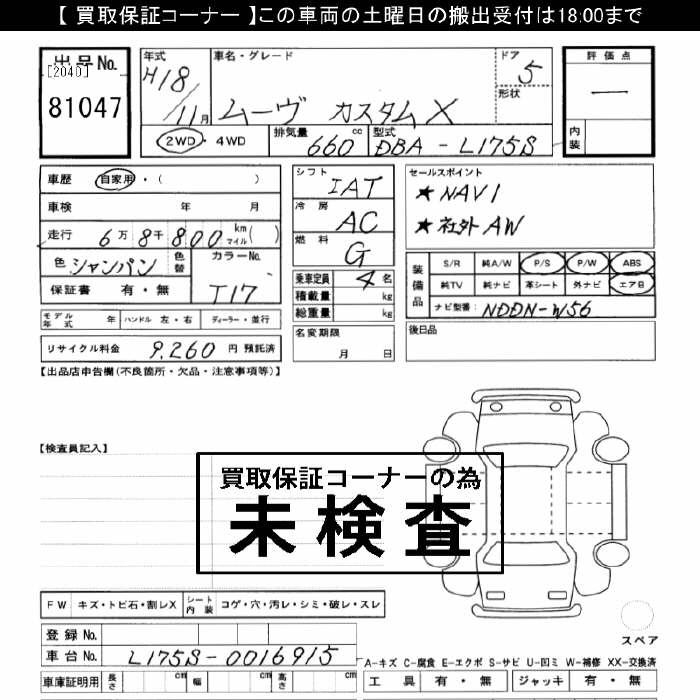 【 買取保証コーナー 】この車両の土曜日の搬出受付は18:00まで
出品No.
[2040]
81047
年式
H18/11月
車名・グレード
ムーヴ カスタムX
ドア
5
形状
2WD・4WD
排気量
660cc
型式
DBA-L175S
評価点
―
内装
車歴 自家用・( )
車検 年 月
走行 6万8千800 km マイル( )
色 シャンパン 色替
カラーNo.
T17
保証書 有・無
シフト
IAT
冷房
AC
燃料
G
乗車定員 4名
積載量 kg
総重量 kg
セールスポイント
★NAVI
★社外AW
装備品
S/R 純A/W P/S P/W ABS
純TV 純ナビ 革シート 外ナビ エアB
ナビ型番: NDDN-W56
モデル年式 年 ハンドル 左・右 ディーラー・並行
リサイクル料金 9,260 円 預託済
名変期限
月 日
後日品
【出品店申告欄(不良箇所・欠品・注意事項等)】
【検査員記入】
買取保証コーナーの為
未検査
FW キズ・トビ石・割レX シート内装 コゲ・穴・汚レ・シミ・破レ・スレ
スペア
登録No.
車台No. L175S-0016915
車庫証明用 長さ cm 幅 cm 高さ cm
A-キズ C-腐食 E-エクボ S-サビ U-凹ミ W-補修 XX-交換済
工具 有・無 ジャッキ 有・無